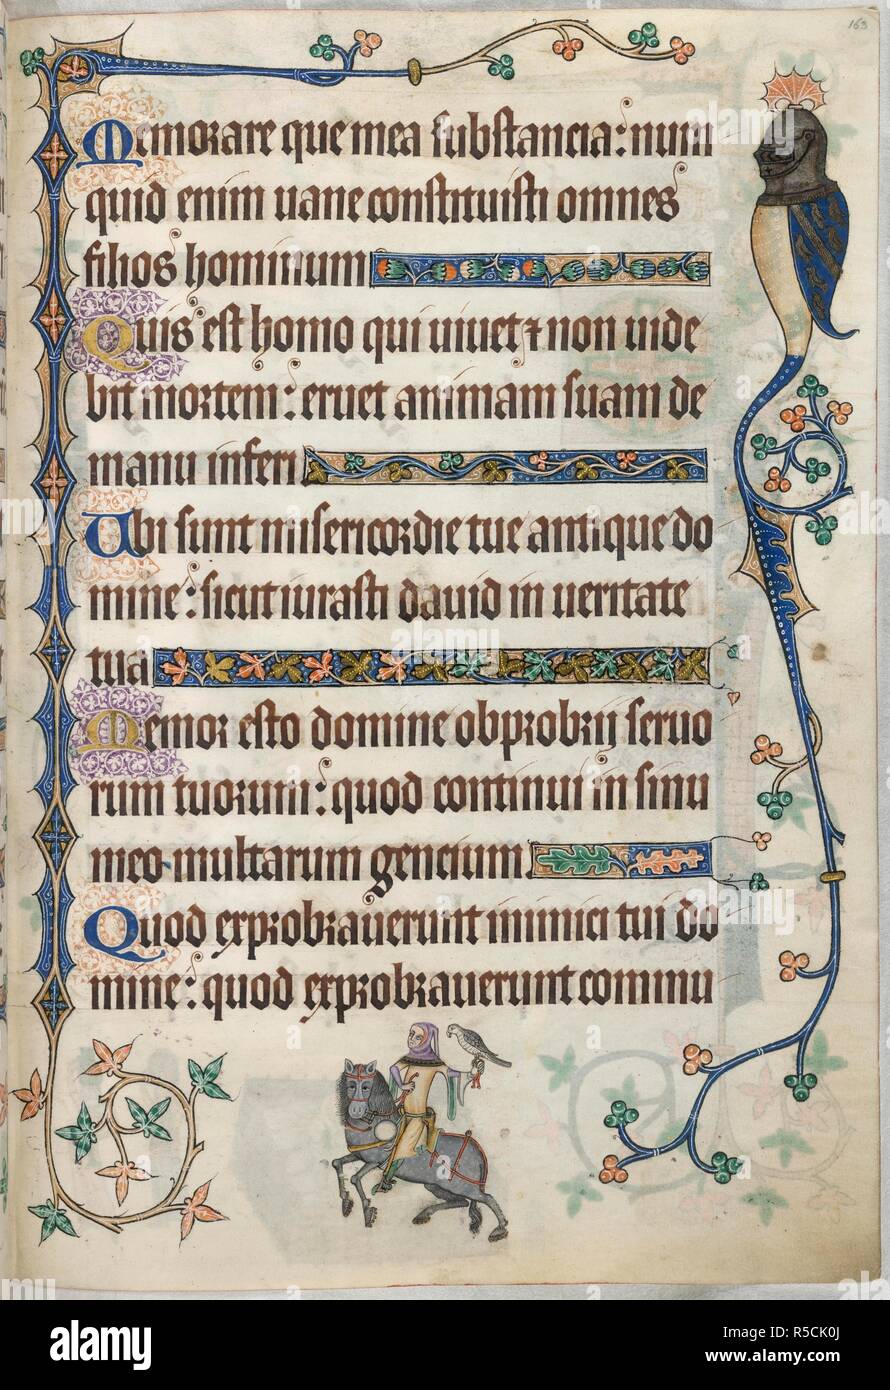 163
Memorare que mea substancia: num
quid enim vane constituisti omnes
filios hominum
Quis est homo qui vivet ⁊ non vide
bit mortem: eruet animam suam de
manu inferi
Ubi sunt misericordie tue antique do
mine: sicut iurasti david in veritate
tua
Memor esto domine obprobrij servo
rum tuorum: quod continui in sinu
meo multarum gencium
Quod exprobraverunt inimici tui do
mine: quod exprobraverunt commu
alamy
Image ID: R5CK0J
www.alamy.com